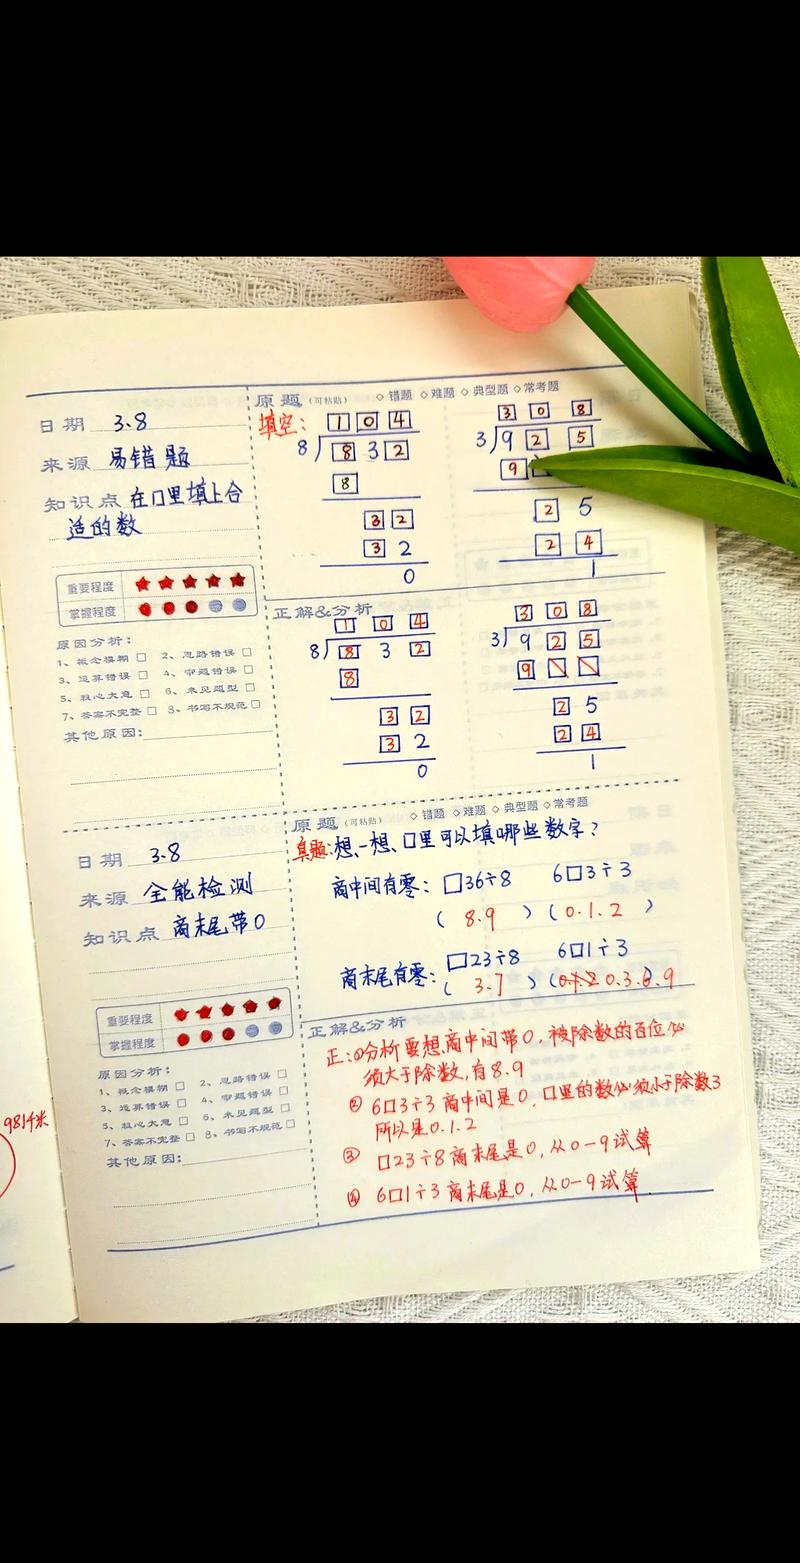 原题（可粘贴） ◇错题 ◇难题 ◇典型题 ◇常考题
日期 3.8
来源 易错题
知识点 在口里填上合
适的数
重要程度 ★★★★★
掌握程度
原因分析：
1、概念模糊 □ 2、思路错误 □
3、运算错误 □ 4、审题错误 □
5、粗心大意 □ 6、未见题型 □
7、答案不完整 □ 8、书写不规范 □
其他原因：
填空：
1 0 4
8 8 3 2
8
3 2
3 2
0
3 0 8
3 9 2 5
9
2 5
2 4
1
正解&分析
1 0 4
8 8 3 2
8
3 2
3 2
0
3 0 8
3 9 2 5
9
2 5
2 4
1
原题（可粘贴） ◇错题 ◇难题 ◇典型题 ◇常考题
日期 3.8
来源 全能检测
知识点 商末尾带0
重要程度 ★★★★★
掌握程度
原因分析：
1、概念模糊 □ 2、思路错误 □
3、运算错误 □ 4、审题错误 □
5、粗心大意 □ 6、未见题型 □
7、答案不完整 □ 8、书写不规范 □
其他原因：
真题：想一想、口里可以填哪些数字？
商中间有零：□36÷8 6□3÷3
（ 8.9 ）（ 0.1.2 ）
商末尾有零：□23÷8 6□1÷3
（ 3.7 ）（ 0.3.6.9
正解&分析
正：①分析要想商中间带0，被除数的百位必
须大于除数，有8.9
② 6口3÷3商中间是0，口里的数必须小于除数3
所以是0.1.2
③ 口23÷8商末尾是0，从0-9试算
④ 6口1÷3商末尾是0，从0-9试算.
9814米